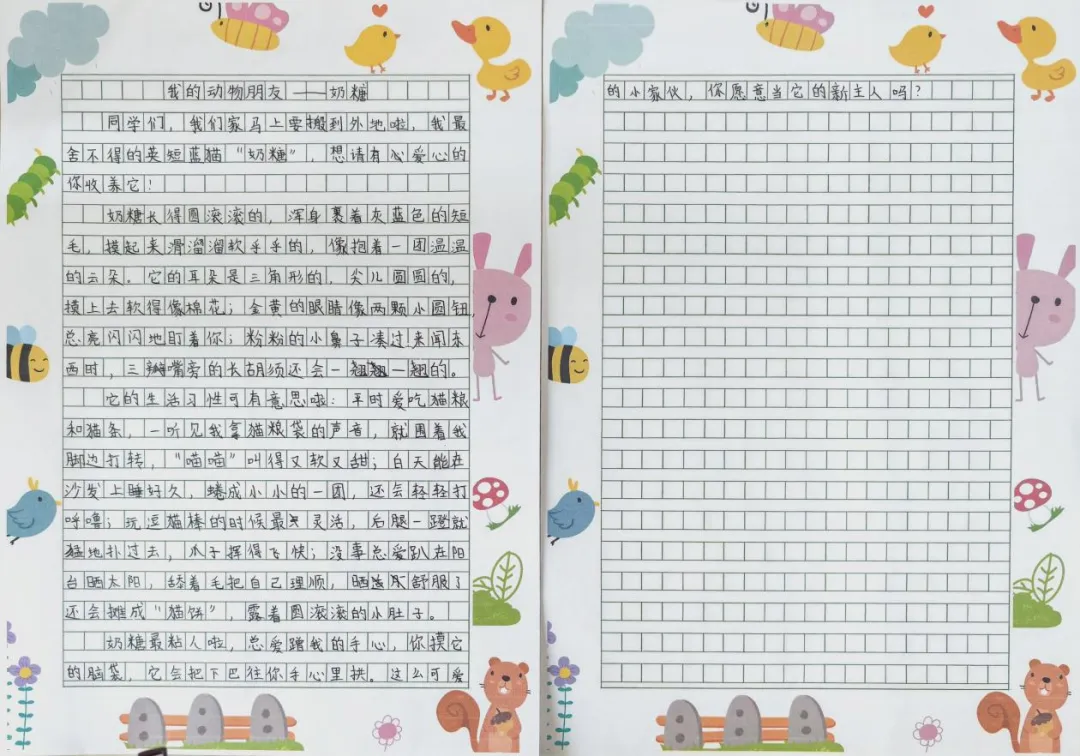 我的动物朋友——奶糖
同学们，我们家马上要搬到外地啦，我最
舍不得的英短蓝猫“奶糖”，想请有心爱心的
你收养它！
奶糖长得圆滚滚的，浑身裹着灰蓝色的短
毛，摸起来滑溜溜软乎乎的，像抱着一团温温
的云朵。它的耳朵是三角形的，尖儿圆圆的，
摸上去软得像棉花；金黄的眼睛像两颗小圆钮，
总亮闪闪地盯着你；粉粉的小鼻子凑过来闻东
西时，三瓣嘴旁的长胡须还会一翘一翘的。
它的生活习性可有意思啦：平时爱吃猫粮
和猫条，一听见我拿猫粮袋的声音，就围着我
脚边打转，“喵喵”叫得又软又甜；白天能在
沙发上睡好久，蜷成小小的一团，还会轻轻打
呼噜；玩逗猫棒的时候最灵活，后腿一蹬就
猛地扑过去，爪子挥得飞快；没事总爱趴在阳
台晒太阳，舔着毛把自己理顺，晒舒服了
还会摊成“猫饼”，露着圆滚滚的小肚子。
奶糖最粘人啦，总爱蹭我的手心，你摸它
的脑袋，它会把下巴往你手心里拱。这么可爱
的小家伙，你愿意当它的新主人吗？